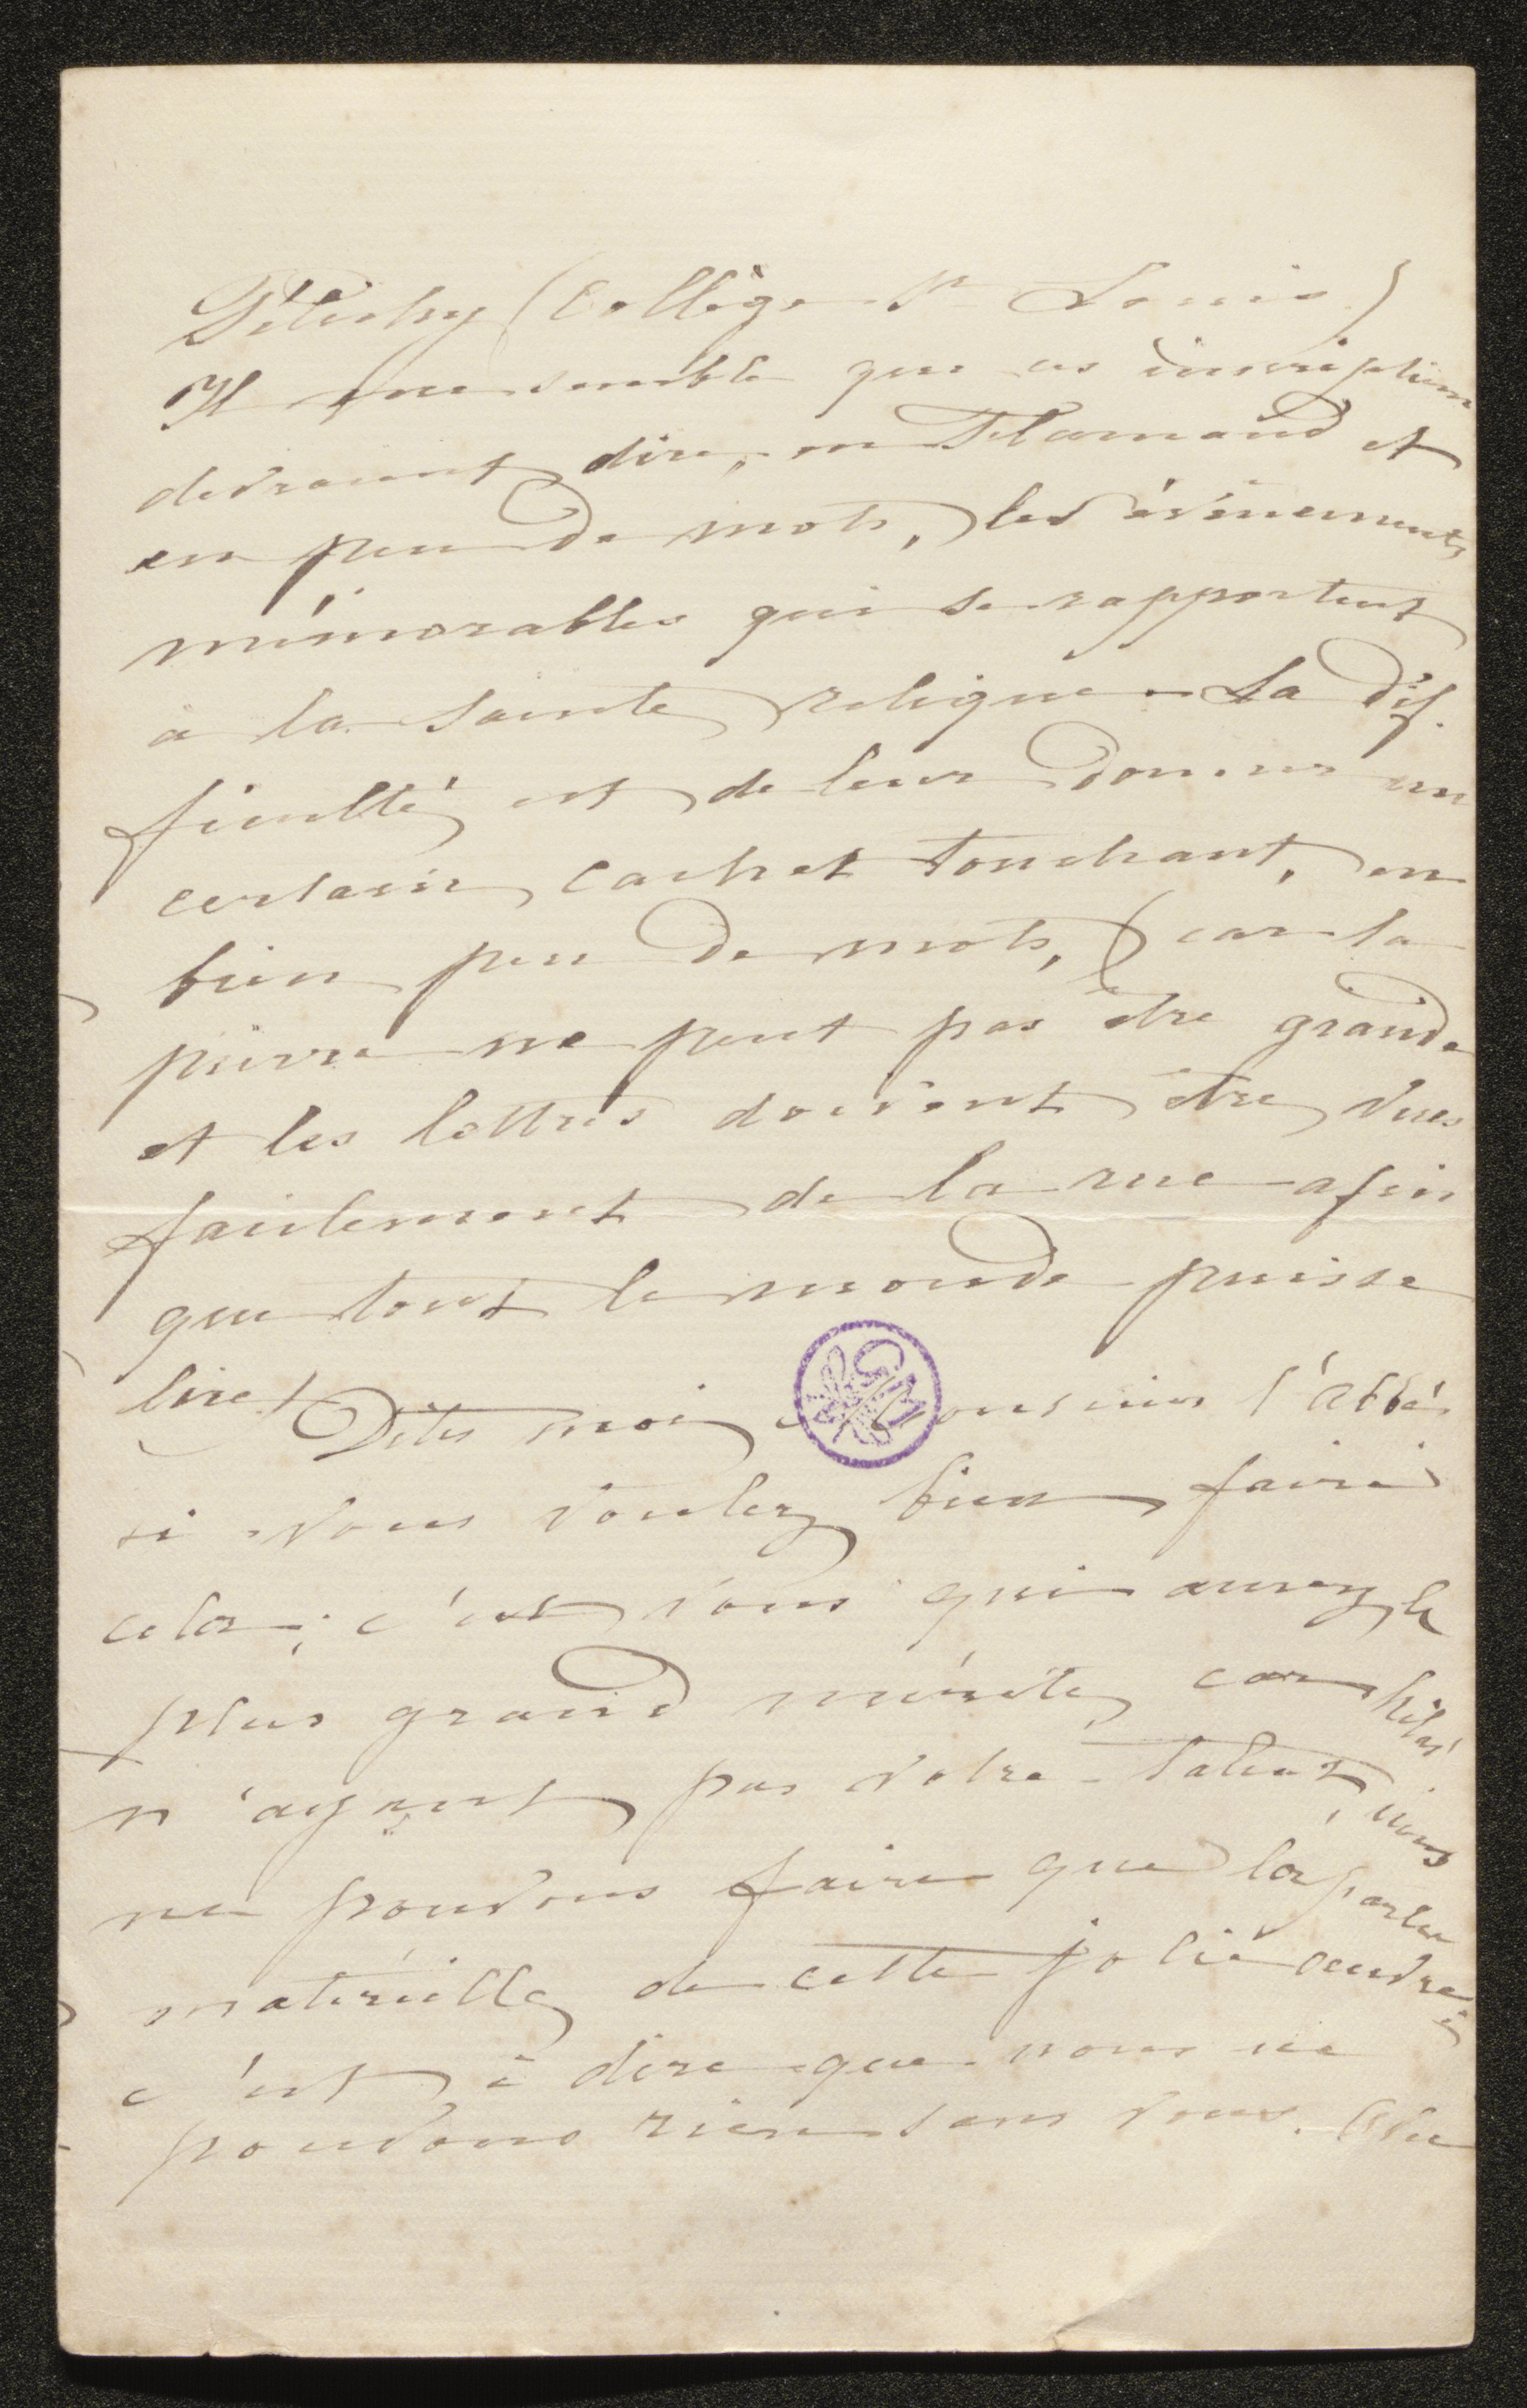 (Collège St Louis)
Il me semble que ces inscriptions
devraient dire, en Flamand et
en peu de mots, les évènements
mémorables qui se rapportent
à la Sainte relique. La dif-
ficulté est de leur donner un
certain cachet touchant, en
bien peu de mots, (car la
pierre ne peut pas être grande
et les lettres doivent être vues
facilement de la rue afin
que tout le monde puisse
lire) Dites moi monsieur l'abbé
si vous voulez bien faire
cela; c'est vous qui aurez le
plus grand mérite, car hélas!
n'ayant pas votre talent, nous
ne pouvons faire que la partie
matérielle de cette jolie oeuvre,
c'est à dire que nous ne
pouvons rien sans vous.